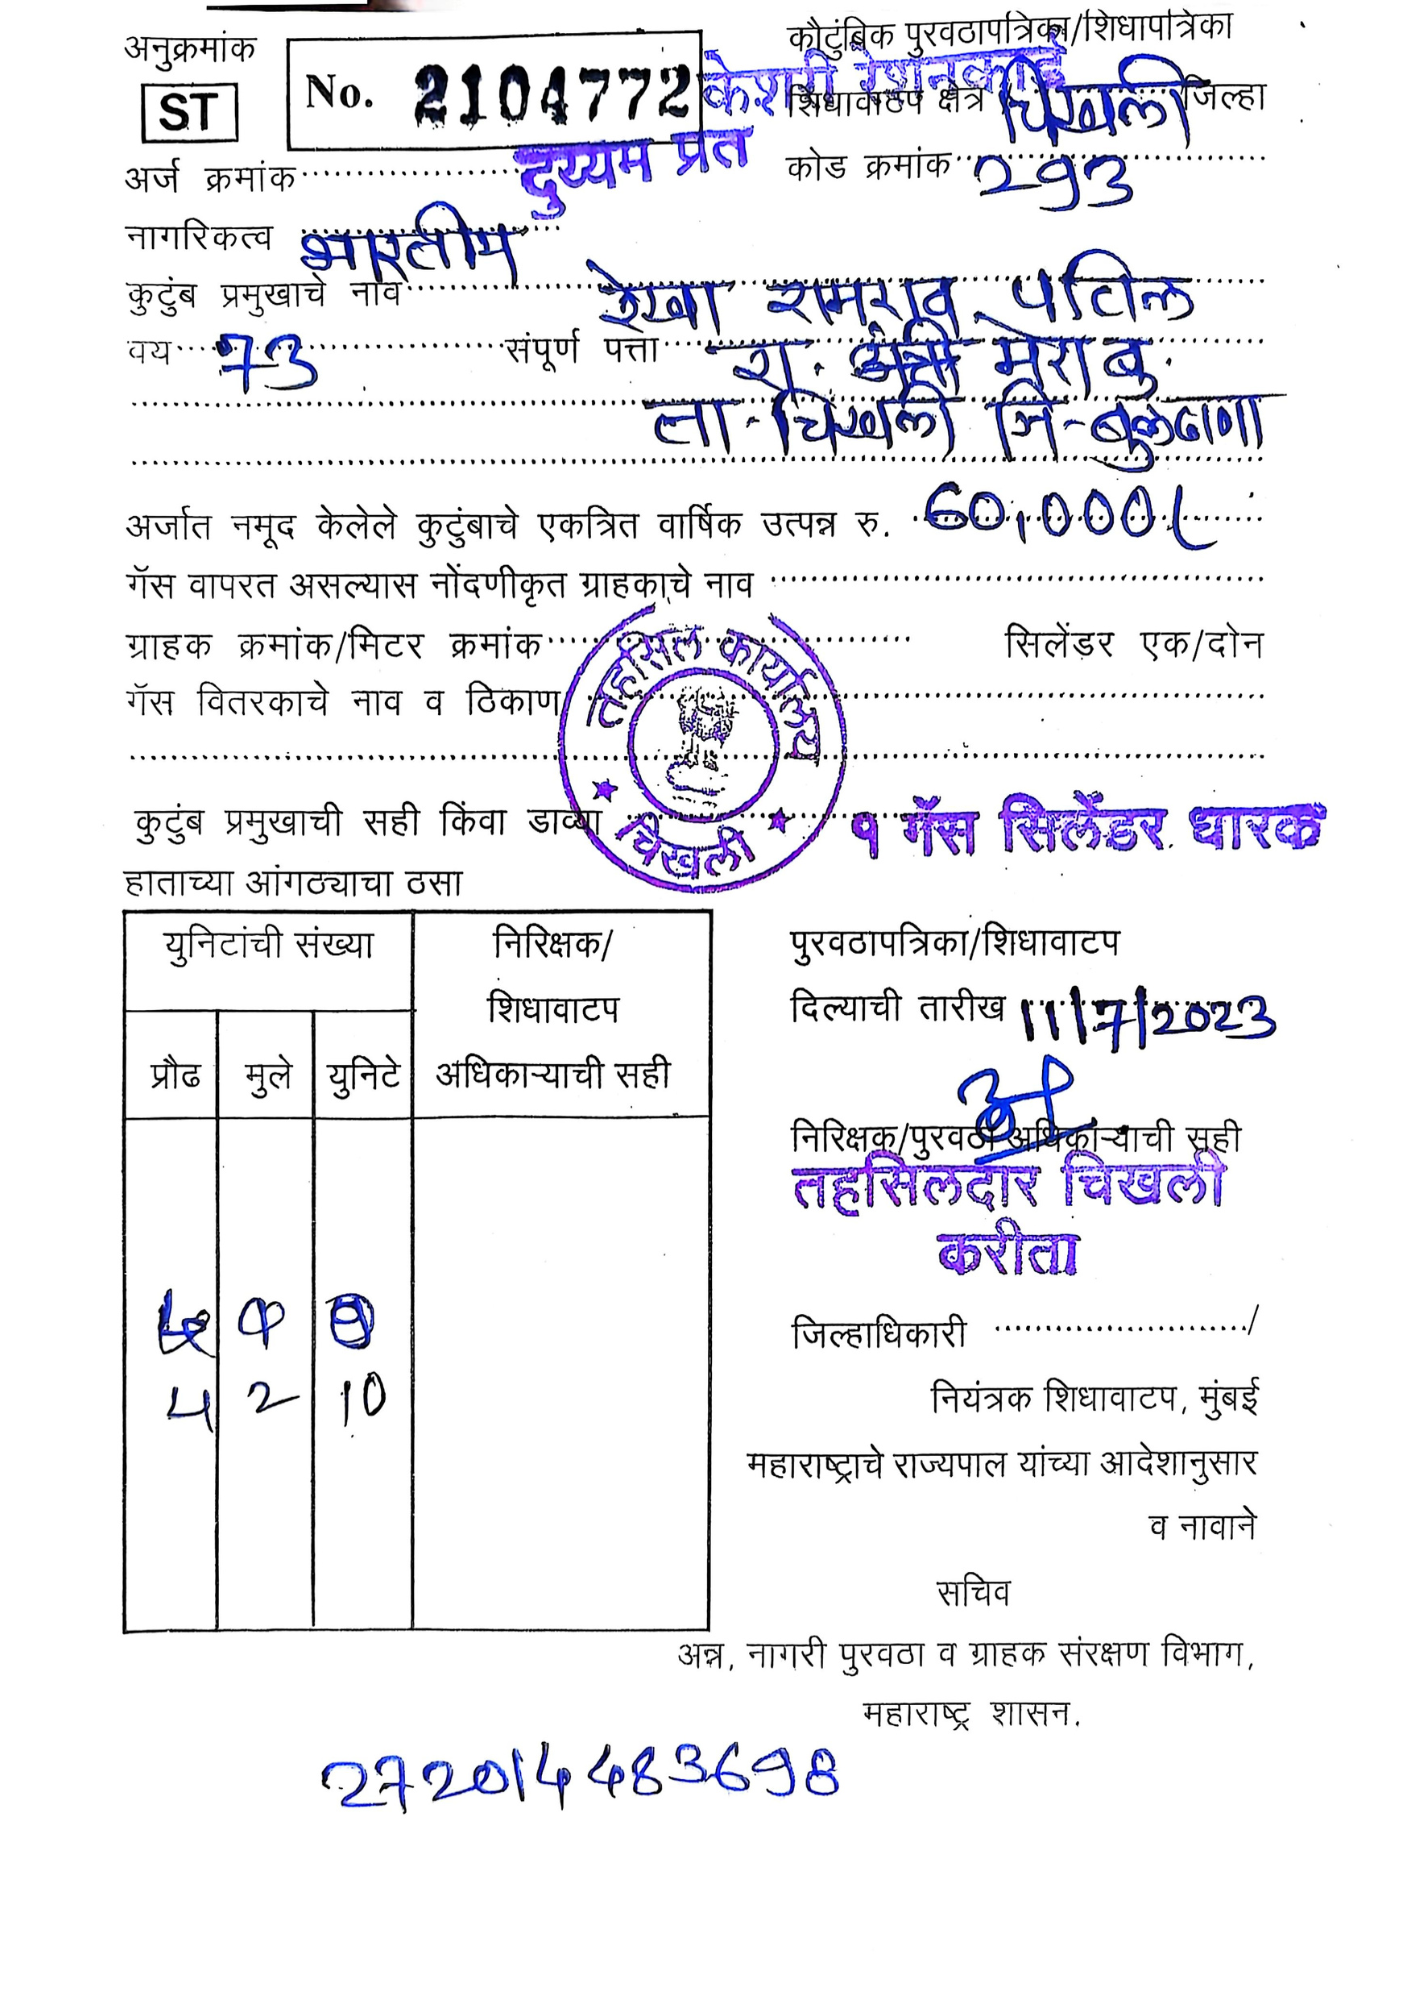 अनुक्रमांक
No. 2104772
ST
कौटुंबिक पुरवठापत्रिका/शिधापत्रिका
केशरी रेशनकार्ड
शिधावाटप क्षेत्र चिखली जिल्हा
दुय्यम प्रत
अर्ज क्रमांक
कोड क्रमांक 293
नागरिकत्व भारतीय
कुटुंब प्रमुखाचे नाव रेखा रामराव पाटिल
वय 73 संपूर्ण पत्ता रा. अंत्री
ता-चिखली जि-बुलढाणा
अर्जात नमूद केलेले कुटुंबाचे एकत्रित वार्षिक उत्पन्न रु. 60,000/
गॅस वापरत असल्यास नोंदणीकृत ग्राहकाचे नाव
ग्राहक क्रमांक/मिटर क्रमांक सिलेंडर एक/दोन
गॅस वितरकाचे नाव व ठिकाण
तहसिल कार्यालय
चिखली
कुटुंब प्रमुखाची सही किंवा डाव्या
हाताच्या आंगठ्याचा ठसा
१ गॅस सिलेंडर धारक
युनिटांची संख्या
निरिक्षक/
शिधावाटप
अधिकाऱ्याची सही
प्रौढ मुले युनिटे
4 2 10
पुरवठापत्रिका/शिधावाटप
दिल्याची तारीख 11/7/2023
निरिक्षक/पुरवठा अधिकाऱ्याची सही
तहसिलदार चिखली
करीता
जिल्हाधिकारी /
नियंत्रक शिधावाटप, मुंबई
महाराष्ट्राचे राज्यपाल यांच्या आदेशानुसार
व नावाने
सचिव
अन्न, नागरी पुरवठा व ग्राहक संरक्षण विभाग,
महाराष्ट्र शासन.
272014483698